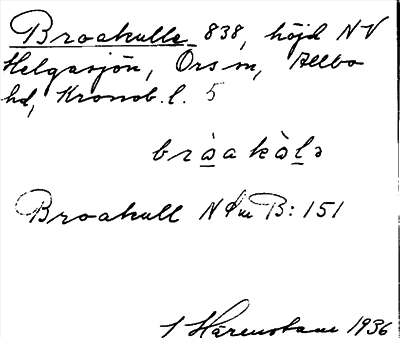 Broakulle 838, höjd NV
Helgasjön, Örs sn, Allbo
hd, Kronob. l. 5
bràakàlə
Broakull NÖm B: 151
J Härenstam 1936